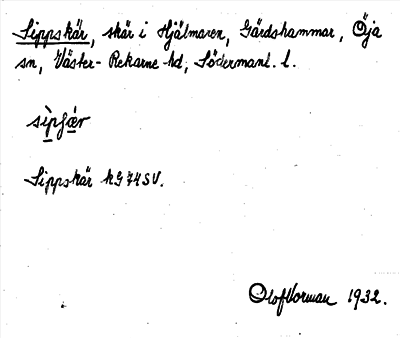 Sippskär, skär i Hjälmaren, Gärdshammar, Öja
sn, Väster-Rekarne hd, Södermanl. l.
Sippskär kG 74 SV.
Olof Vorman 1932.